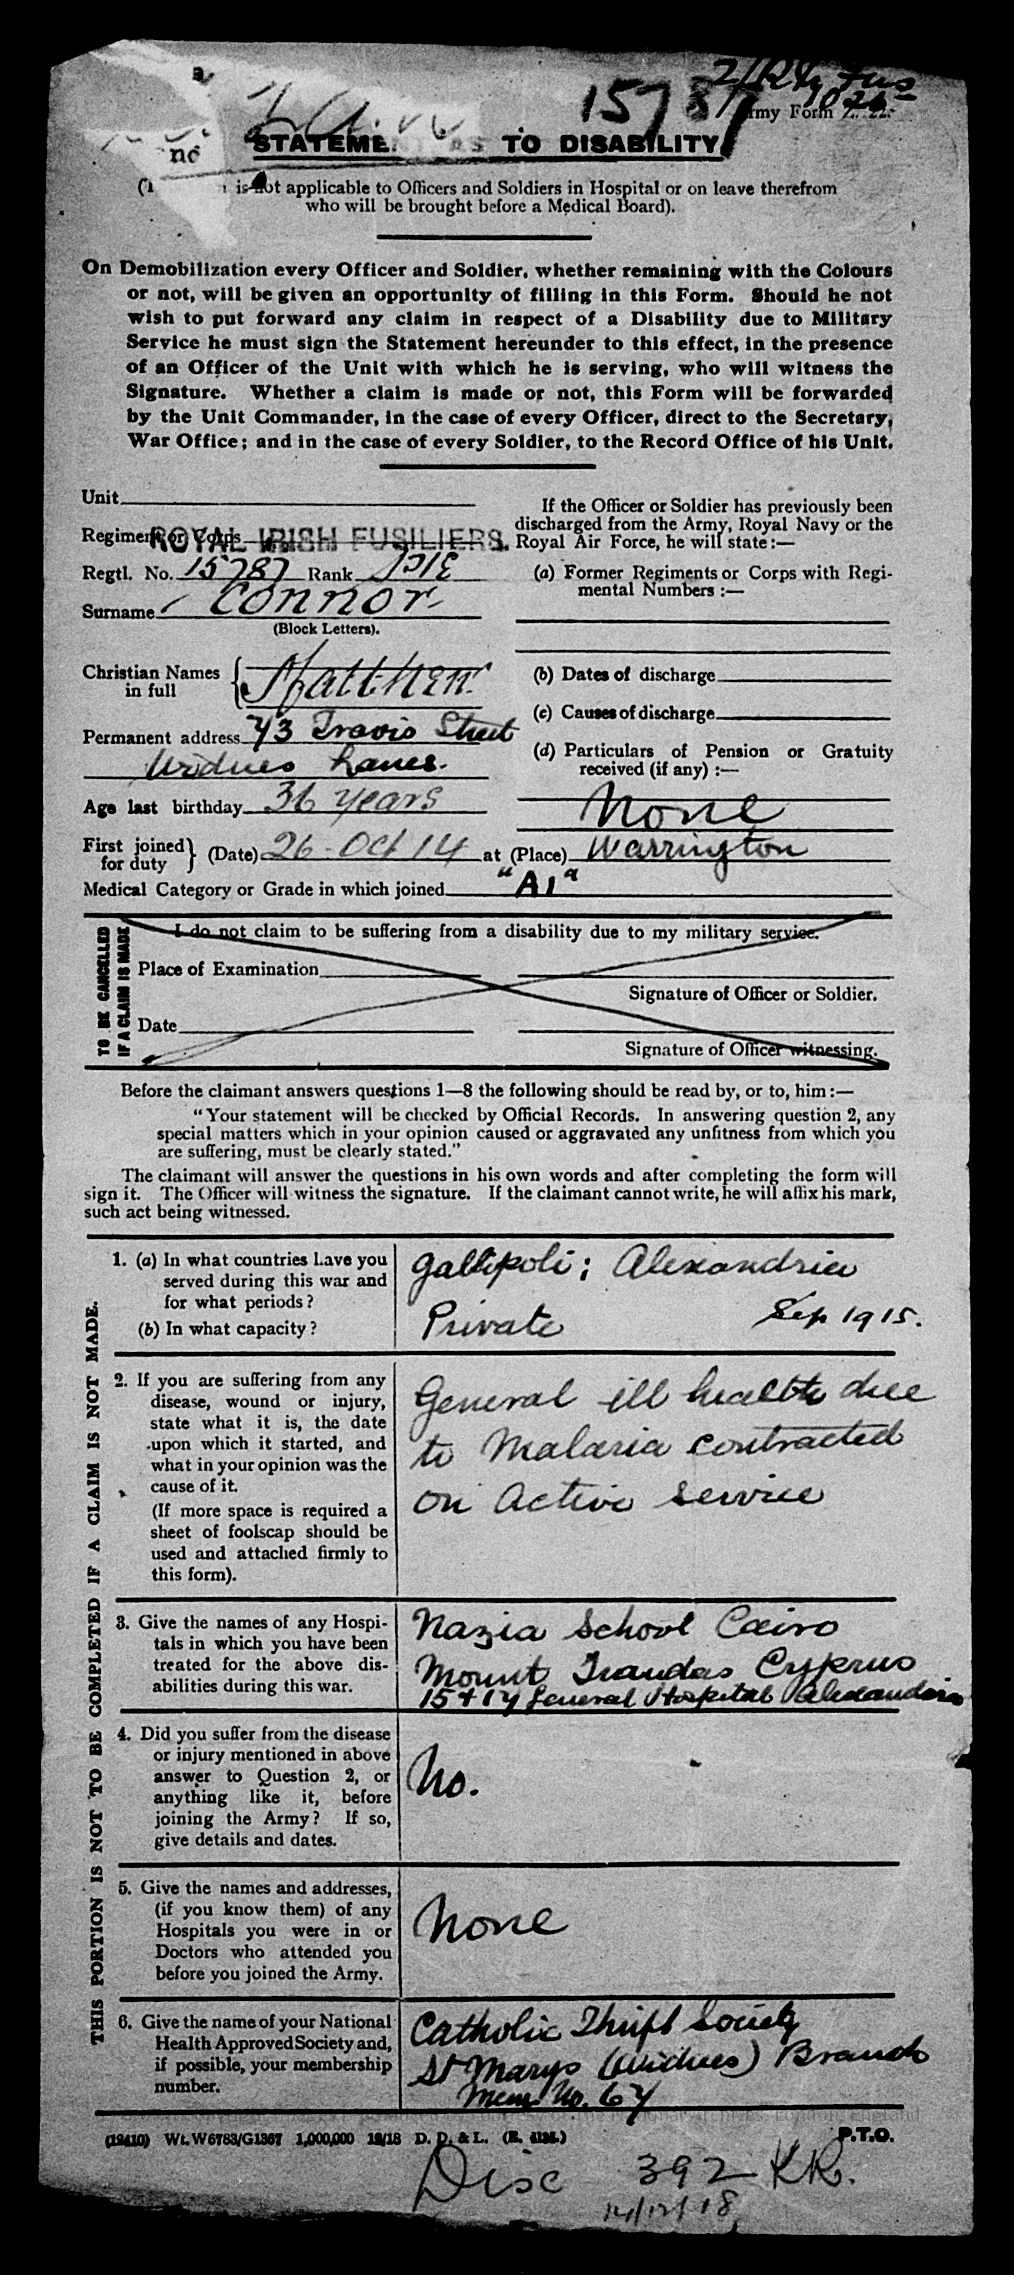 2/R Ir Fus
15787
Army Form Z. 22.
STATEMENT AS TO DISABILITY
no
is not applicable to Officers and Soldiers in Hospital or on leave therefrom
who will be brought before a Medical Board).
On Demobilization every Officer and Soldier, whether remaining with the Colours
or not, will be given an opportunity of filling in this Form. Should he not
wish to put forward any claim in respect of a Disability due to Military
Service he must sign the Statement hereunder to this effect, in the presence
of an Officer of the Unit with which he is serving, who will witness the
Signature. Whether a claim is made or not, this Form will be forwarded
by the Unit Commander, in the case of every Officer, direct to the Secretary,
War Office; and in the case of every Soldier, to the Record Office of his Unit.
Unit
Regiment or Corps ROYAL IRISH FUSILIERS.
Regtl. No. 15787 Rank Pte
Surname Connor
(Block Letters).
Christian Names
in full Matthew
Permanent address 73 Travis Street
Widnes Lancs.
Age last birthday 36 years
If the Officer or Soldier has previously been
discharged from the Army, Royal Navy or the
Royal Air Force, he will state:—
(a) Former Regiments or Corps with Regi-
mental Numbers :—
(b) Dates of discharge
(c) Causes of discharge
(d) Particulars of Pension or Gratuity
received (if any) :—
None
First joined
for duty } (Date) 26-Oct 14 at (Place) Warrington
Medical Category or Grade in which joined "A1"
TO BE CANCELLED
IF A CLAIM IS MADE
I do not claim to be suffering from a disability due to my military service.
Place of Examination
Signature of Officer or Soldier.
Date
Signature of Officer witnessing.
Before the claimant answers questions 1—8 the following should be read by, or to, him:—
"Your statement will be checked by Official Records. In answering question 2, any
special matters which in your opinion caused or aggravated any unfitness from which you
are suffering, must be clearly stated."
The claimant will answer the questions in his own words and after completing the form will
sign it. The Officer will witness the signature. If the claimant cannot write, he will affix his mark,
such act being witnessed.
THIS PORTION IS NOT TO BE COMPLETED IF A CLAIM IS NOT MADE.
1. (a) In what countries have you
served during this war and
for what periods?
(b) In what capacity?
Gallipoli; Alexandria
Sep 1915.
Private
2. If you are suffering from any
disease, wound or injury,
state what it is, the date
upon which it started, and
what in your opinion was the
cause of it.
(If more space is required a
sheet of foolscap should be
used and attached firmly to
this form).
General ill health due
to Malaria contracted
on Active Service
3. Give the names of any Hospi-
tals in which you have been
treated for the above dis-
abilities during this war.
Nazia School Cairo
Mount Traudas Cyprus
15 + 17 General Hospital Alexandria
4. Did you suffer from the disease
or injury mentioned in above
answer to Question 2, or
anything like it, before
joining the Army? If so,
give details and dates.
No.
5. Give the names and addresses,
(if you know them) of any
Hospitals you were in or
Doctors who attended you
before you joined the Army.
None
6. Give the name of your National
Health Approved Society and,
if possible, your membership
number.
Catholic Thrift Society
St Marys (Widnes) Branch
Mem No. 67
(19410) Wt. W6783/G1367 1,000,000 12/18 D. D. & L. (E. 4136.)
P.T.O.
Disc 392 KR.
14/12/18